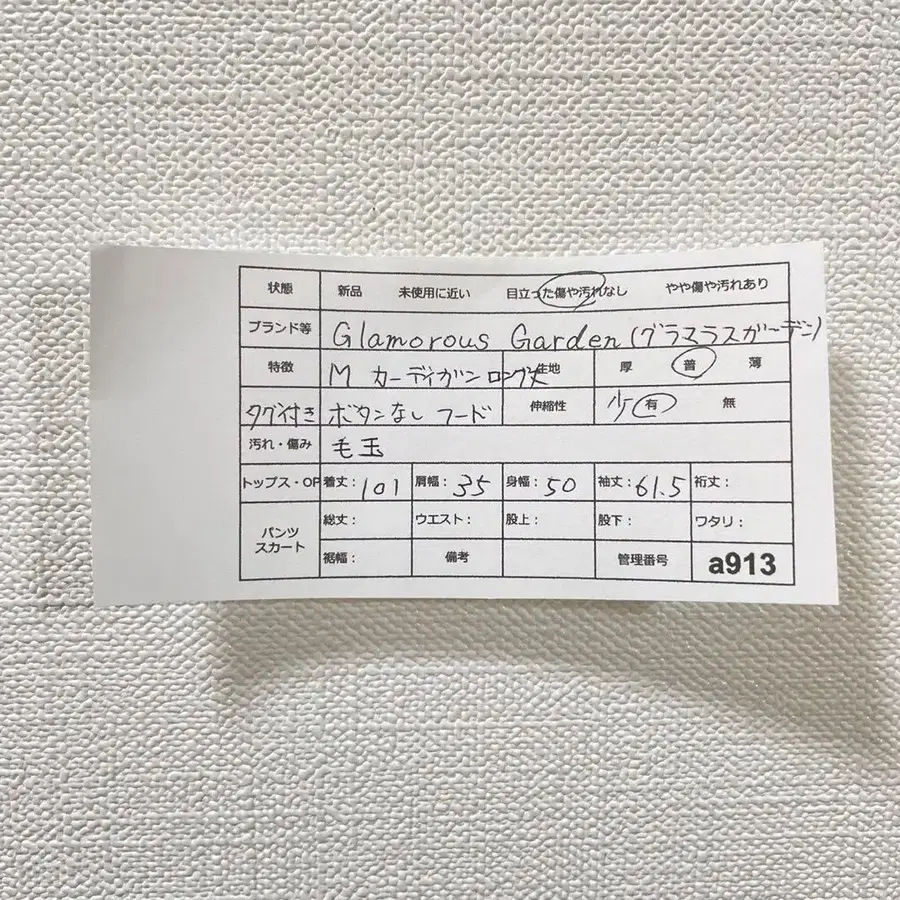 状態 新品 未使用に近い 目立った傷や汚れなし やや傷や汚れあり
ブランド等 Glamorous Garden (グラマラスガーデン)
特徴 M カーディガン ロング丈 生地 厚 普 薄
タグ付き ボタンなし フード 伸縮性 少 有 無
汚れ・傷み 毛玉
トップス・OP 着丈: 101 肩幅: 35 身幅: 50 袖丈: 61.5 裄丈:
パンツ スカート 総丈: ウエスト: 股上: 股下: ワタリ:
裾幅: 備考 管理番号 a913